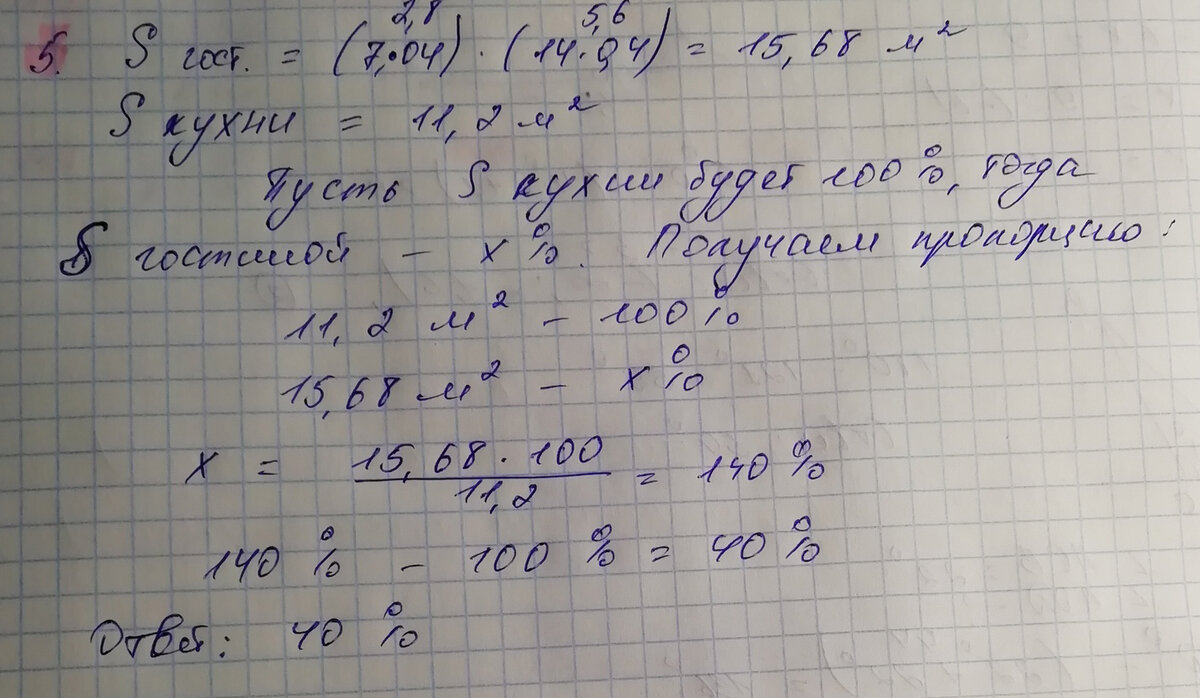 2,8 5,6
5. S гост. = (7·04) · (14·0,4) = 15,68 м²
S кухни = 11,2 м²
Пусть S кухни будет 100%, тогда
S гостиной – x%. Получаем пропорцию:
11,2 м² – 100%
15,68 м² – x%
x = 15,68·100 / 11,2 = 140%
140% – 100% = 40%
Ответ: 40%